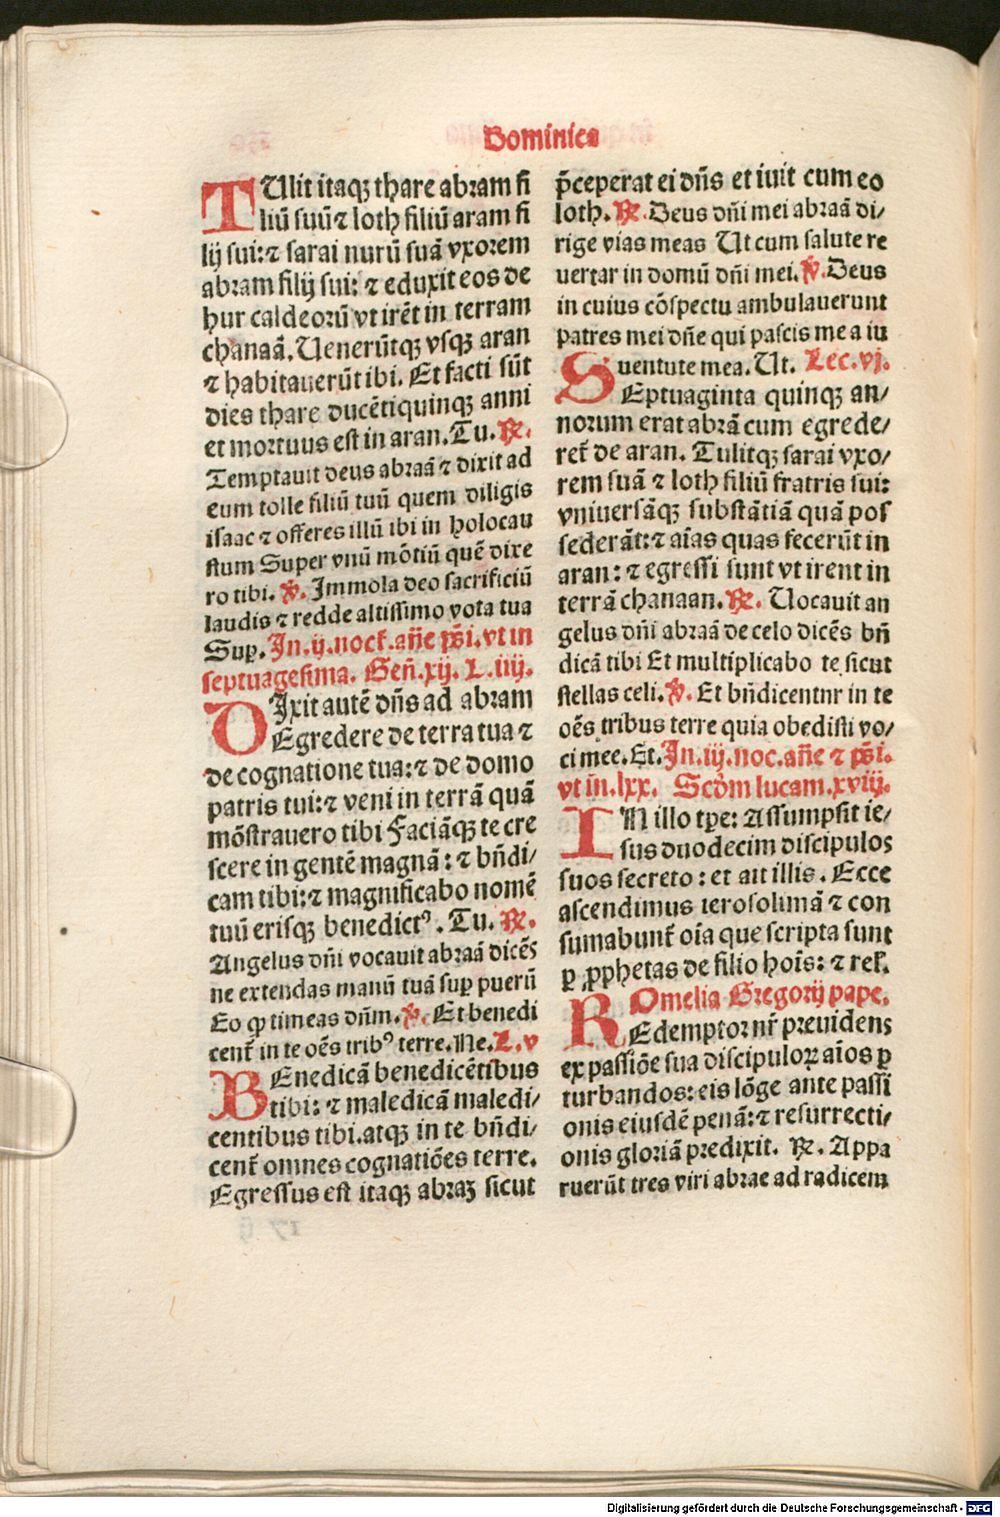 Dominica
TUlit itaqꝫ thare abꝛam fi
liū suū ⁊ loth filiū aram fi
lij sui: ⁊ sarai nurū suā vxoꝛem
abꝛam filij sui: ⁊ eduxit eos de
hur caldeoꝛū vt irēt in terram
chanaā. Uenerūtqꝫ vsqꝫ aran
⁊ habitauerūt ibi. Et facti sūt
dies thare ducētiquinqꝫ anni
et moꝛtuus est in aran. Tu. ℟.
Temptauit deus abꝛaā ⁊ dixit ad
eum tolle filiū tuū quem diligis
isaac ⁊ offeres illū ibi in holocau
stum Super vnū mōtiū quē dixe
ro tibi. ℣. Immola deo sacrificiū
laudis ⁊ redde altissimo vota tua
Suꝑ. In.ij.nocť.añe ps̄i.vt in
septuagesima. Geñ.xij. L.iiij.
DIxit autē dn̄s ad abꝛam
Egredere de terra tua ⁊
de cognatione tua: ⁊ de domo
patris tui: ⁊ veni in terrā quā
mōstrauero tibi Faciāqꝫ te cre
scere in gentē magnā: ⁊ bn̄di/
cam tibi: ⁊ magnificabo nomē
tuū erisqꝫ benedictꝰ. Tu. ℟.
Angelus dn̄i vocauit abꝛaā dicēs
ne extendas manū tuā suꝑ puerū
Eo ꝙ timeas dn̄m. ℣. Et benedi
cenť in te oēs tribꝰ terre. Ne. L.v
BEnedicā benedicētibus
tibi: ⁊ maledicā maledi/
centibus tibi. atqꝫ in te bn̄di/
cenť omnes cognatiōes terre.
Egressus est itaqꝫ abꝛaꝫ sicut
p̄ceperat ei dn̄s et iuit cum eo
loth. ℟. Deus dn̄i mei abꝛaā di/
rige vias meas Ut cum salute re
uertar in domū dn̄i mei. ℣. Deus
in cuius cōspectu ambulauerunt
patres mei dn̄e qui pascis me a iu
uentute mea. Ut. Lec.vj.
SEptuaginta quinqꝫ an/
noꝛum erat abꝛā cum egrede/
reť de aran. Tulitqꝫ sarai vxo/
rem suā ⁊ loth filiū fratris sui:
vniuersāqꝫ substātiā quā pos
sederāt: ⁊ aīas quas fecerūt in
aran: ⁊ egressi sunt vt irent in
terrā chanaan. ℟. Uocauit an
gelus dn̄i abꝛaā de celo dicēs bn̄
dicā tibi Et multiplicabo te sicut
stellas celi. ℣. Et bn̄dicentnr in te
oēs tribus terre quia obedisti vo/
ci mee. Et. In.iij.noc.añe ⁊ ps̄i.
vt īn.lxx. Scd̄m lucam.xviij.
IN illo tp̄e: Assumpsit ie/
sus duodecim discipulos
suos secreto: et ait illis. Ecce
ascendimus ierosolimā ⁊ con
sumabunť oīa que scripta sunt
ꝑ ꝓphetas de filio hoīs: ⁊ rel̄.
Omelia Gregorij pape.
REdemptoꝛ nr̄ pꝛeuidens
ex passiōe sua discipuloꝝ aīos ꝑ
turbandos: eis lōge ante passi
onis eiusdē penā: ⁊ resurrecti/
onis gloꝛiā pꝛedixit. ℟. Appa
ruerūt tres viri abꝛae ad radicem
Digitalisierung gefördert durch die Deutsche Forschungsgemeinschaft - DFG